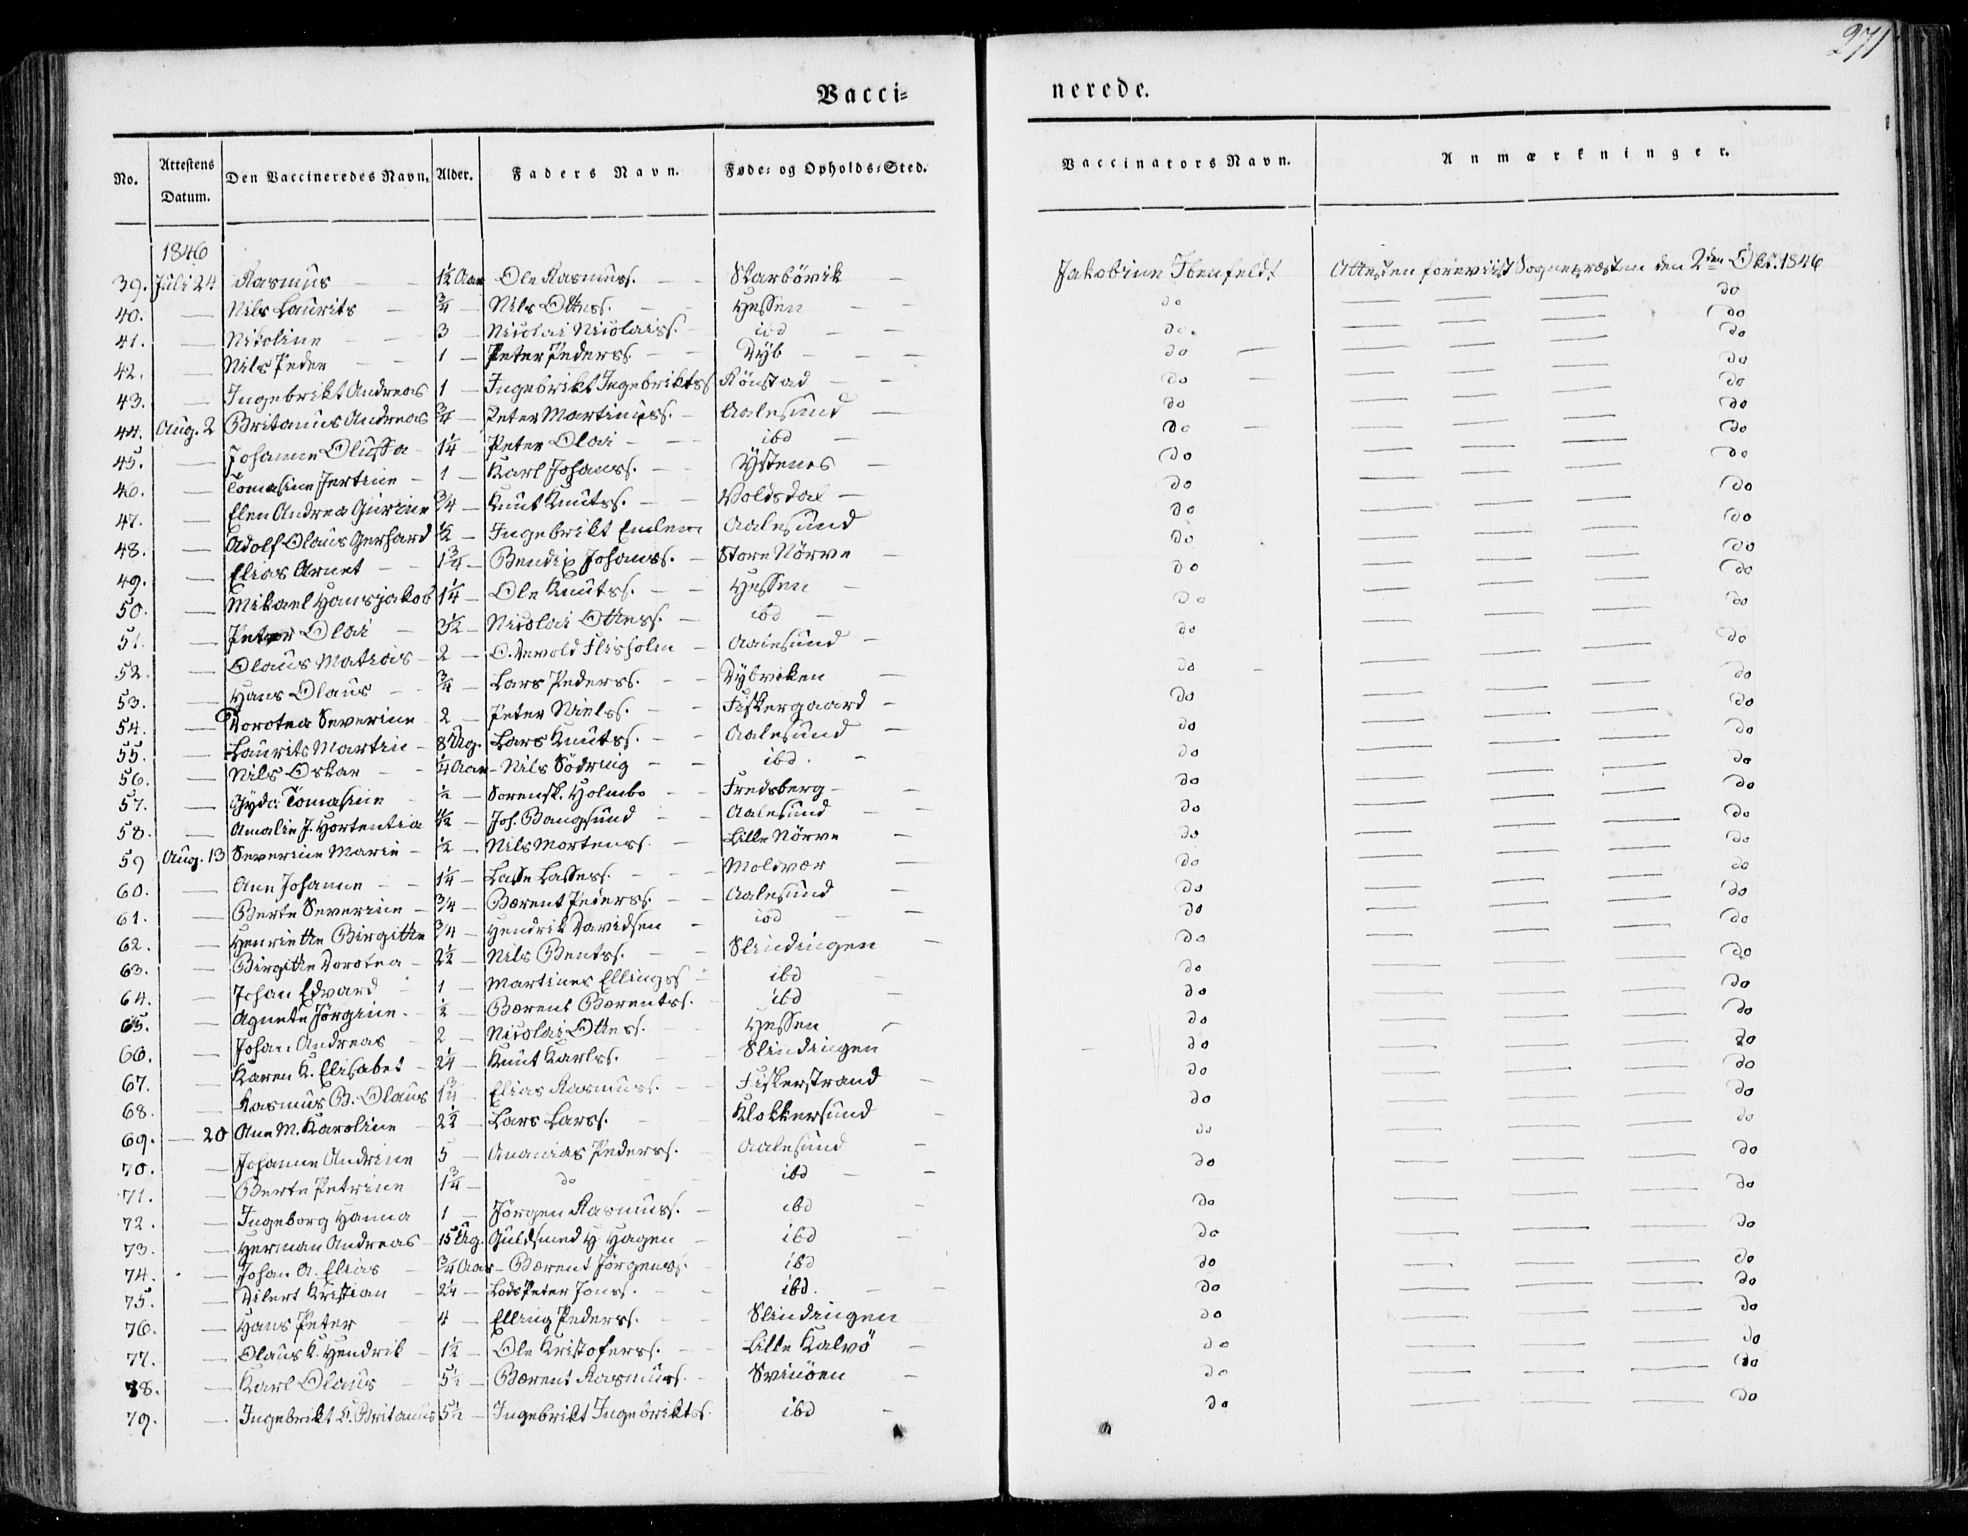 271
Vacci= nerede.
No. Attestens Datum. Den Vaccineredes Navn. Alder. Faders Navn. Føde= og Opholds=Sted. Vaccinators Navn. Anmærkninger.
1846
39. Juli 24 Rasmus 1½ Aar Ole Rasmuss. Skarbövik Jakobine Ibenfeldt Attesten foreviist Sognepræsten den 2den Okt. 1846
40. — Nils Laurits — ¾ — Nils Ottess. Hessen — do — — — do
41. — Nikoline — 3 — Nicolai Nicolaiss. ibd — do. — — — do
42. — Nils Peder — 1 — Peter Peders. — Dyb — do — — — do
43. — Ingebrikt Andreas 1 — Ingebrikt Ingebriktss. Rönstad — do — — — do
44. Aug. 2 Britanus Andreas ¾ — Peter Martinuss. — Aalesund — do — — — do
45. — Johanne Olussa — 1¼ — Peter Olai — ibd — do — — — do
46. — Tomasine Jertine — 1 — Karl Johanss. — Ystenes — do — — — do
47. — Elen Andrea Gurine ¾ — Knut Knutss. — Voldsdal — do — — — do
48. — Adolf Olaus Gerhard ½ — Ingebrikt Emlem Aalesund do — — — do
49. — Elias Arnet — 1¾ — Bendix Johanss. — Store Nörve — do — — — do
50. — Mikael Hansjakob 1¼ — Ole Knutss. — Hessen — do — — — do
51. — Peter Olai — 3½ — Nicolai Ottess. — ibd — do — — — do
52. — Olaus Matias — 2 — O. Devold Flisholm — Aalesund — do — — — do
53. — Hans Olaus — ¾ — Lars Pederss. — Dybviken — do — — — do
54. — Dorotea Severine 2 — Peter Nielss. — Fiskergaard — do — — — do
55. — Laurits Martin — 8 Ug. Lars Knutss. — Aalesund — do — — — do
56. — Nils Oskar — ¼ Aar — Nils Södring — ibd. — do — — — do
57. — Gyda Tomasine ½ — Sorensk. Holmbo — Fredsberg — do — — — do
58. — Amalie J. Hortentia ½ — Joh. Bangsund — Aalesund — do — — — do
59 Aug. 13 Severine Marie — ½ — Nils Mortenss. — Lille Nörve — do — — — do
60. — Ane Johanne — 1¼ — Lasse Lassess. — Molvær — do — — — do
61. — Berte Severine — ¾ — Bærent Pederss. — Aalesund — do — — — do
62. — Henriette Birgitte ¾ — Hendrik Davidsen — ibd — do — — — do
63. — Birgitte Dorotea — 2½ — Nils Bentss. — Slindingen — do — — — do
64. — Johan Edvard 1 — Martines Ellingss — ibd — do — — — do
65. — Agnete Jörgine. ½ — Bærent Bærentss. ibd — do — — — do
66. — Johan Andreas — 2 — Nicolai Ottess. — Hessen — do — — — do
67. — Karen K. Elisabet — 2¼ — Knut Karlss. Slindingen do — — — do
68. — Rasmus B. Olaus 1¾ Elias Rasmuss. — Fiskerstrand — do — — — do
69. — 20 Ane M. Karoline — 2½ — Lars Larss. — Klokkersund — do — — — do
70. — Johanne Andrine 5 — Ananias Pederss. Aalesund — do — — — do
71. — Berte Petrine 1¾ — do — ibd — do — — — do
72. — Ingeborg Hanna 1 — Jörgen Rasmuss. — ibd do — — — do
73. — Herman Andreas — 15 Ug. Guldsmed H. Hagen — ibd — do — — — do
74. — Johan A. Elias — ¾ Aar — Bærent Jörgenss. ibd do — — — do
75. — Eilert Kristian — 2¼ — Lods Peter Jonss. — ibd. — do — — — do
76. — Hans Peter — 4 — Elling Pederss. — Slindingen do — — — do
77. — Olaus K. Hendrik — 1½ — Ole Kristoferss. — Lille Kalvö — do — — — do
78. — Karl Olaus — 5½ — Bærent Rasmuss. — Svinöen — do — — — do
79. — Ingebrikt E. Britanus 5½ — Ingebrikt Ingebriktss. ibd — do — — — do